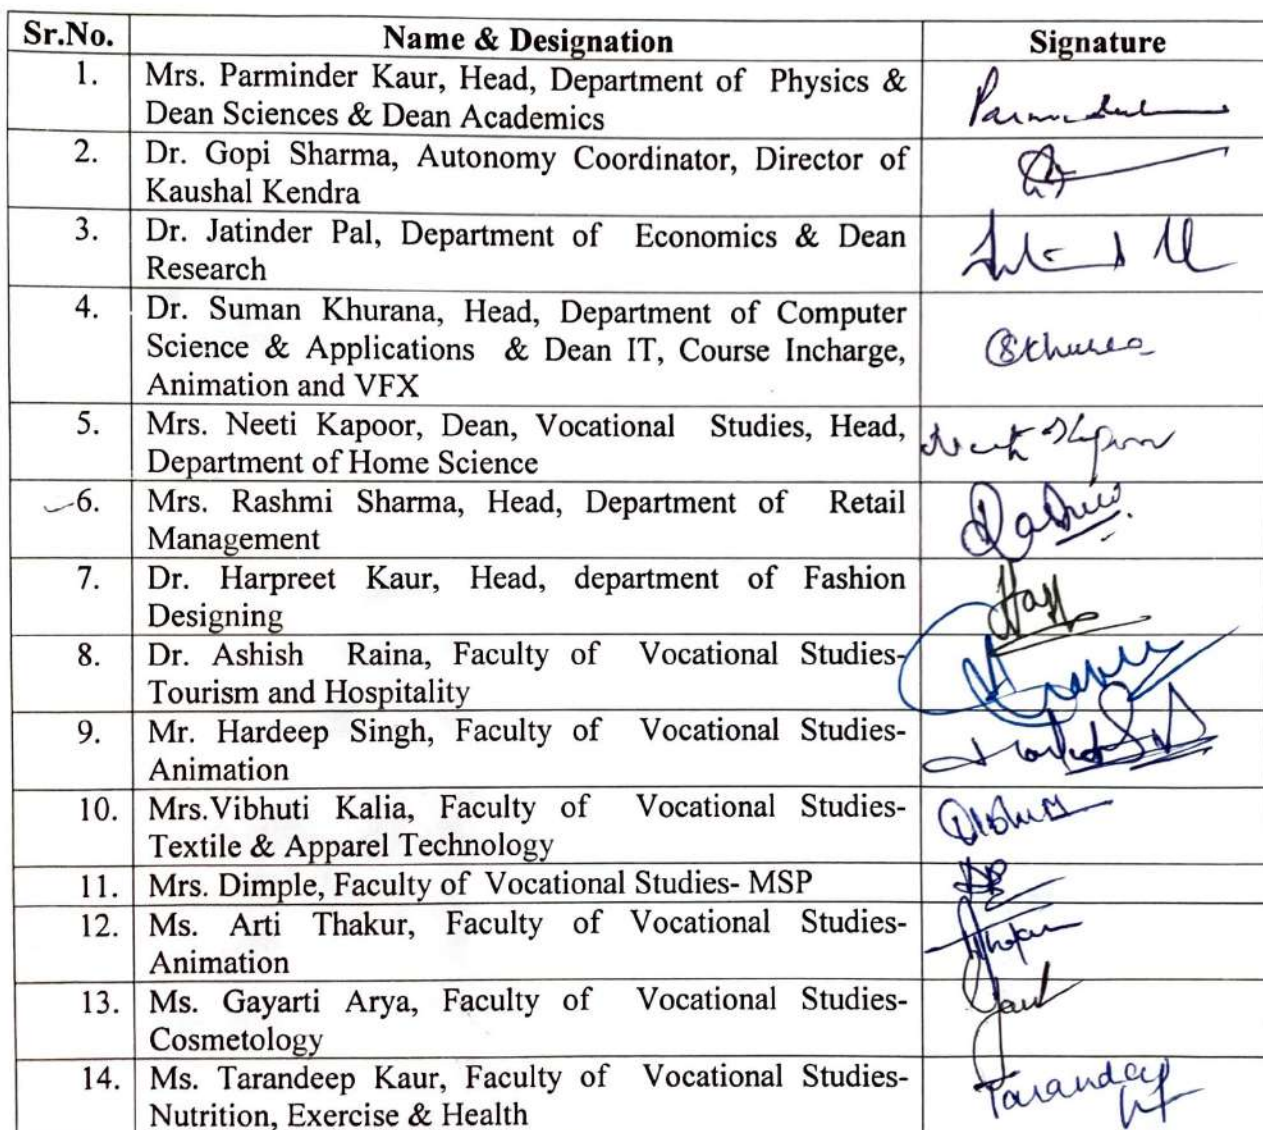 Sr.No. Name & Designation Signature
1. Mrs. Parminder Kaur, Head, Department of Physics &
Dean Sciences & Dean Academics
2. Dr. Gopi Sharma, Autonomy Coordinator, Director of
Kaushal Kendra
3. Dr. Jatinder Pal, Department of Economics & Dean
Research
4. Dr. Suman Khurana, Head, Department of Computer
Science & Applications & Dean IT, Course Incharge,
Animation and VFX
5. Mrs. Neeti Kapoor, Dean, Vocational Studies, Head,
Department of Home Science
6. Mrs. Rashmi Sharma, Head, Department of Retail
Management
7. Dr. Harpreet Kaur, Head, department of Fashion
Designing
8. Dr. Ashish Raina, Faculty of Vocational Studies-
Tourism and Hospitality
9. Mr. Hardeep Singh, Faculty of Vocational Studies-
Animation
10. Mrs.Vibhuti Kalia, Faculty of Vocational Studies-
Textile & Apparel Technology
11. Mrs. Dimple, Faculty of Vocational Studies- MSP
12. Ms. Arti Thakur, Faculty of Vocational Studies-
Animation
13. Ms. Gayarti Arya, Faculty of Vocational Studies-
Cosmetology
14. Ms. Tarandeep Kaur, Faculty of Vocational Studies-
Nutrition, Exercise & Health